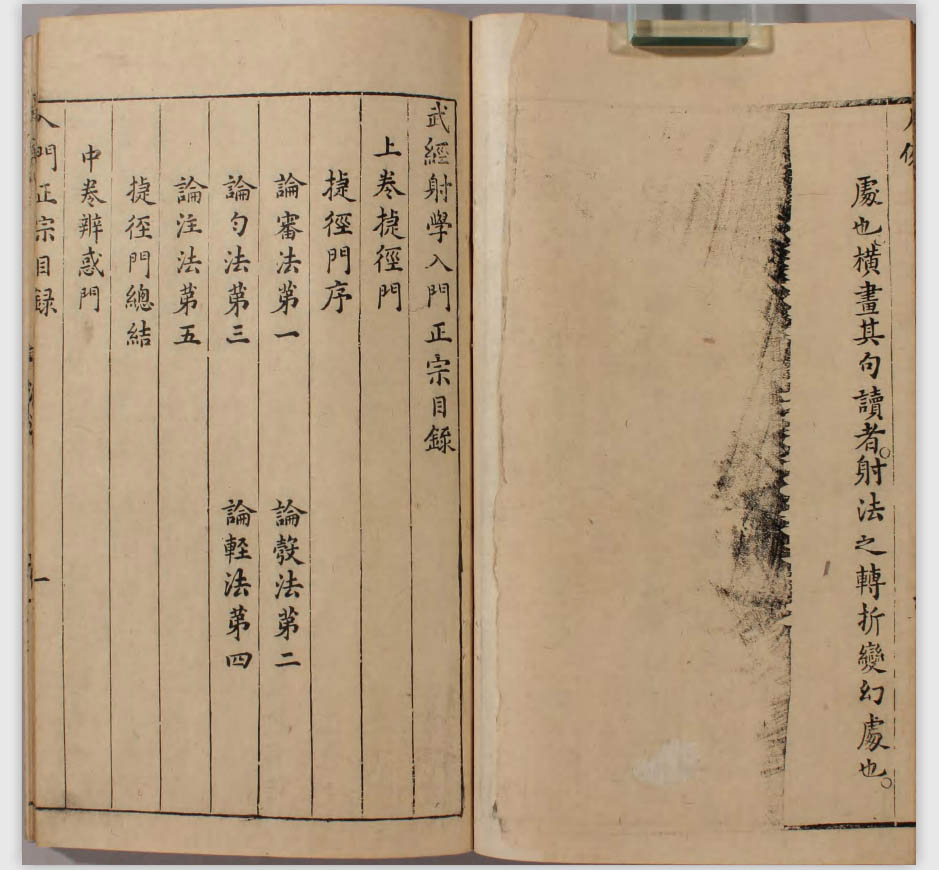 處也橫畫其句讀者射法之轉折變幻處也
武經射學入門正宗目錄
上卷捷徑門
捷徑門序
論審法第一　論彀法第二
論勻法第三　論輕法第四
論注法第五
捷徑門總結
中卷辨惑門
入門正宗目録
一